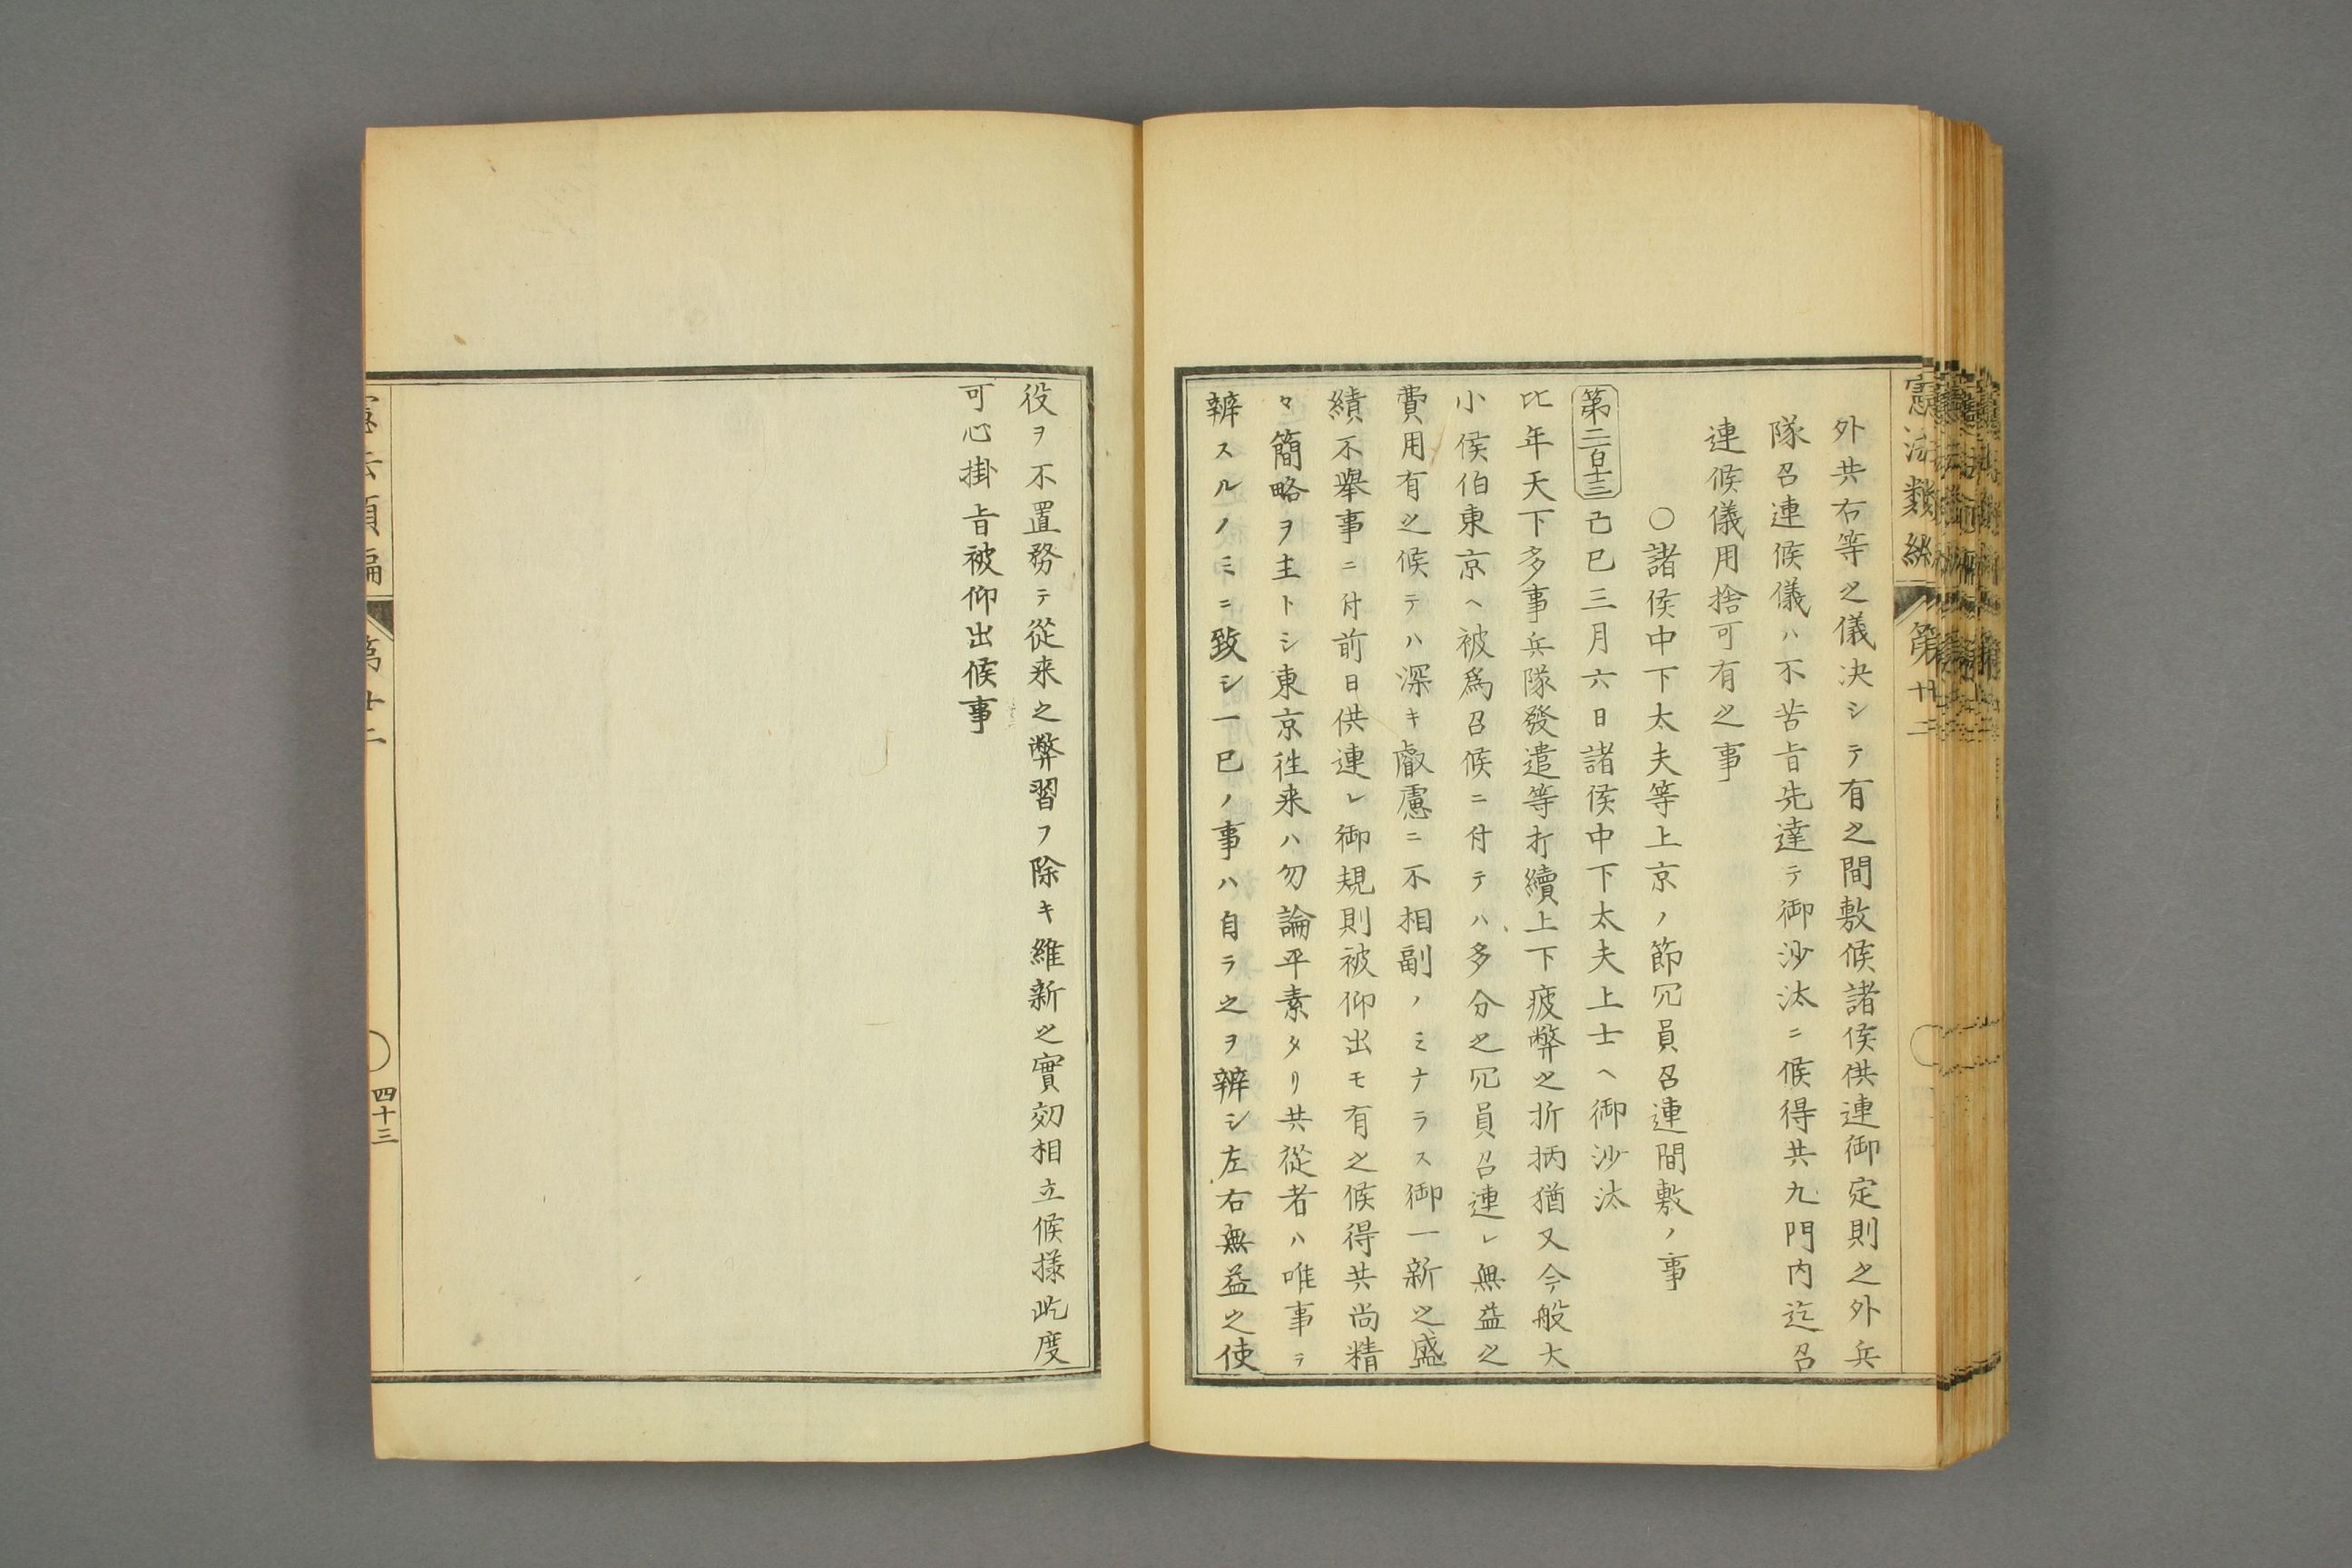 憲法類編 第廿二
外共右等之儀决シテ有之間敷候諸侯供連御定則之外兵
隊召連候儀ハ不苦旨先達テ御沙汰ニ候得共九門内迄召
連候儀用捨可有之事
○諸侯中下太夫等上京ノ節冗員召連間敷ノ事
第二百十三 己巳三月六日諸侯中下太夫上士ヘ御沙汰
比年天下多事兵隊發遣等打續上下疲弊之折柄猶又今般大
小侯伯東京ヘ被爲召候ニ付テハ多分之冗員召連レ無益之
費用有之候テハ深キ叡慮ニ不相副ノミナラス御一新之盛
績不擧事ニ付前日供連レ御規則被仰出モ有之候得共尚精
々簡略ヲ主トシ東京往来ハ勿論平素タリ共從者ハ唯事ヲ
辨スルノミニ致シ一己ノ事ハ自ラ之ヲ辨シ左右無益之使
役ヲ不置務テ從来之弊習ヲ除キ維新之實効相立候様此度
可心掛旨被仰出候事
憲法類編 第廿二
四十三